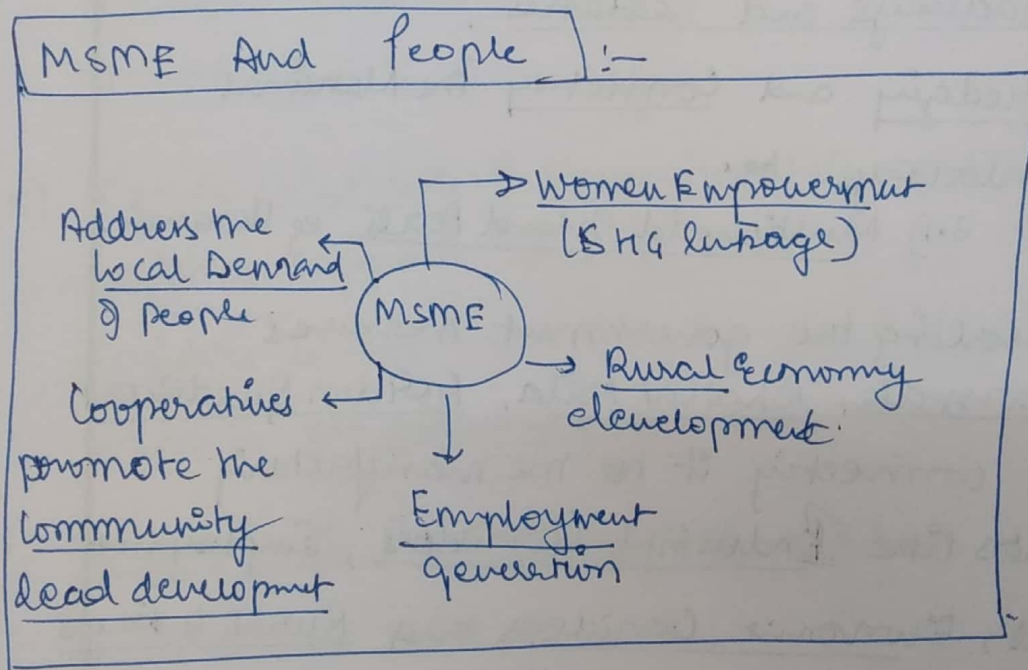 MSME And People :-
Women Empowerment
(SHG linkage)
Address the
local Demand
of people.
MSME
Rural Economy
development.
Cooperatives
promote the
Community
lead development
Employment
generation